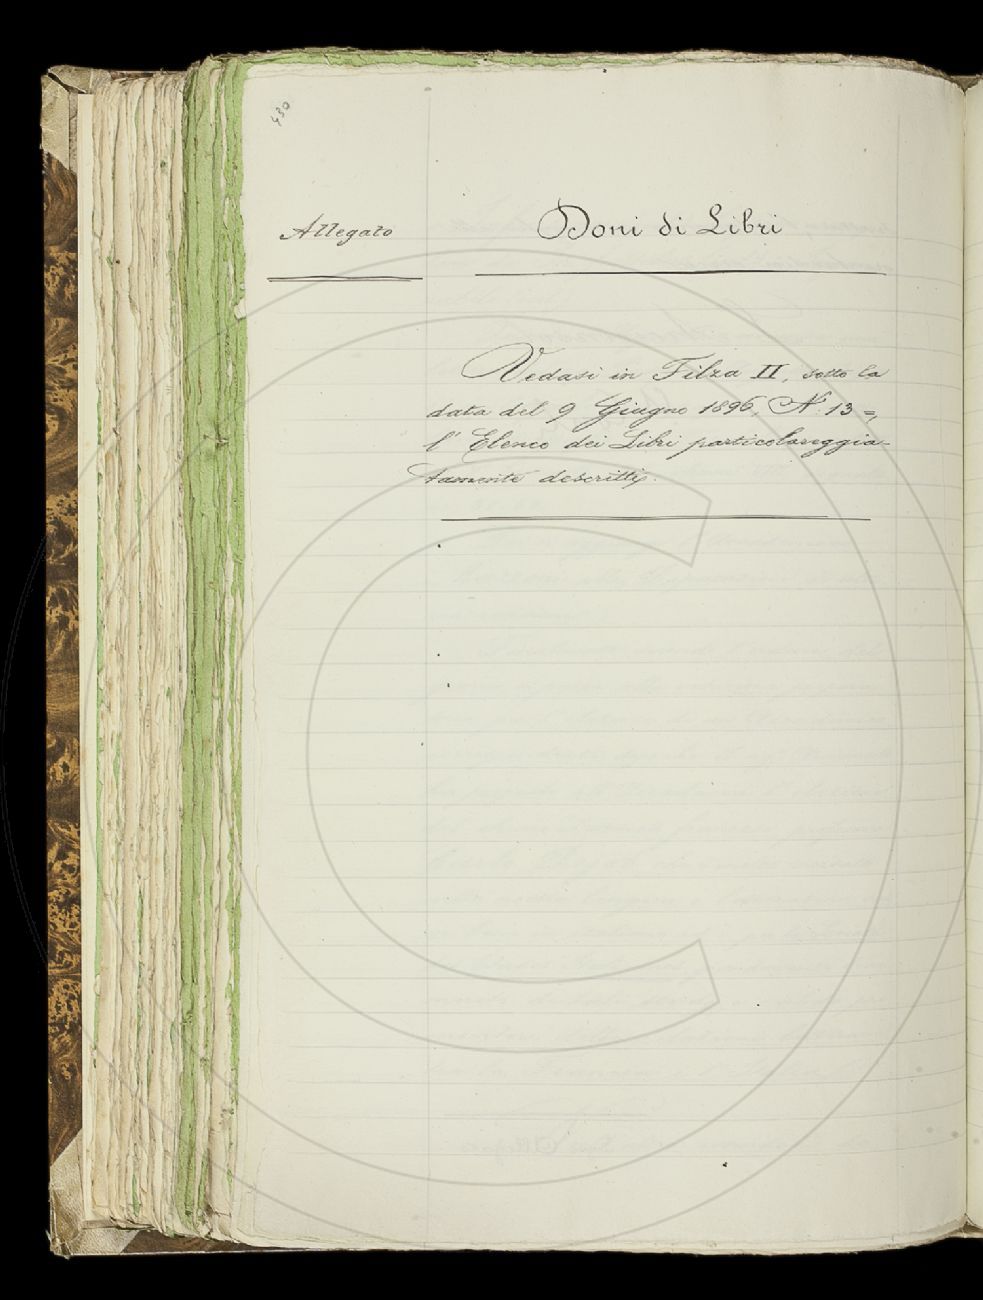 430
Allegato
Doni di Libri
Vedasi in Filza II, sotto la
data del 9 Giugno 1896, N. 13=,
l'Elenco dei Libri particolareggia-
tamente descritti.